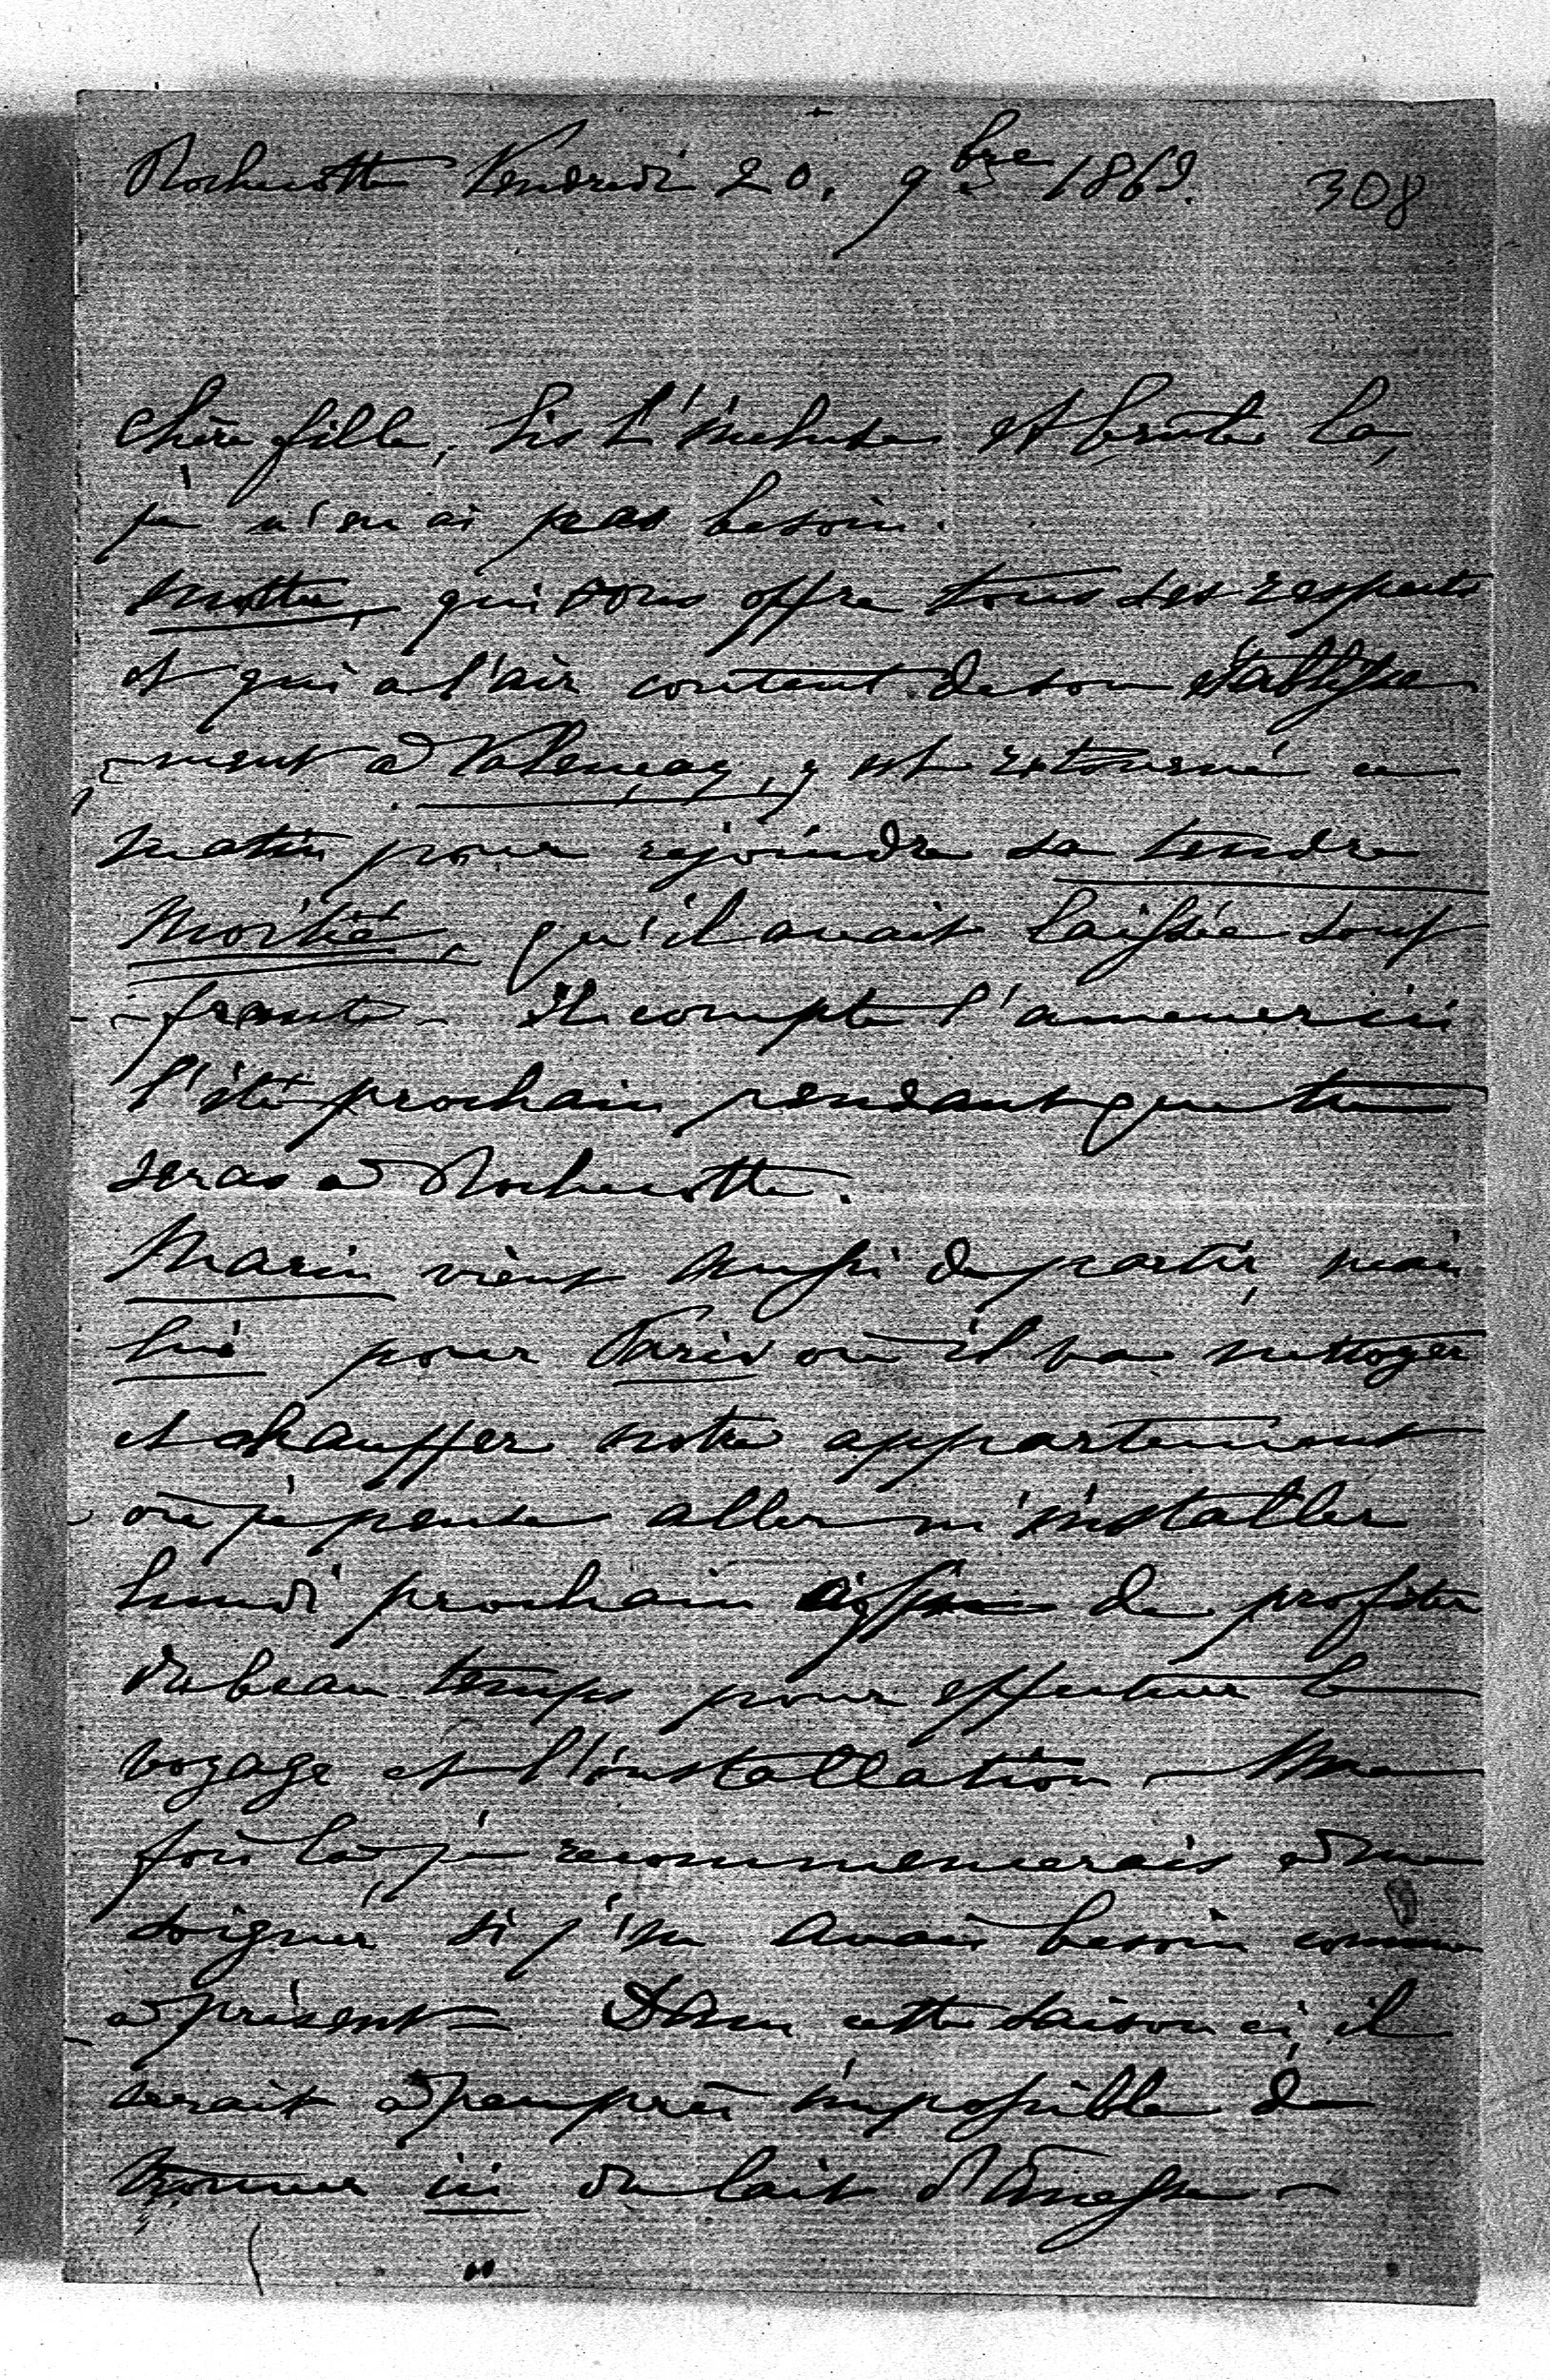 Rochecotte Vendredi 20. 9bre 1863. 308
chère fille, lis l'incluse et brule la,
je n'en ai pas besoin.
Motte, qui vous offre tous ses respects
et qui a l'air content de son établisse
-ment à Valençay, y est retourné ce
matin pour rejoindre sa tendre
Moitié, qu'il avait laissée souf
-frante - Il compte l'amener ici
l'été prochain pendant que tu
seras à Rochecotte.
Marin vient aussi de partir, mais
lui pour Paris où il va nettoyer
et chauffer notre appartement
où je pense aller m'installer
lundi prochain afin de profiter
du beau temps pour effectuer le
voyage et l'installation - Une
fois là je recommencerais à me
soigner si j'en avais besoin comme
à présent - Dans cette saison ci, il
serait à peu près impossible de
trouver ici du lait d'ânesse -